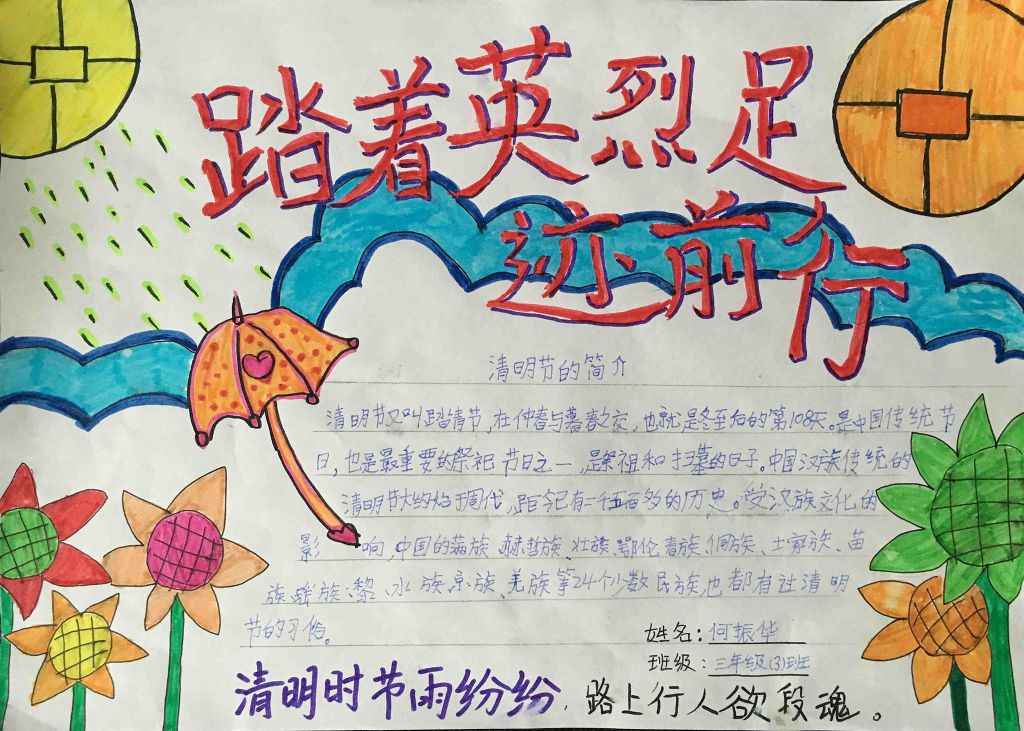 踏着英烈足
迹前行
清明节的简介
清明节又叫踏青节,在仲春与暮春之交,也就是冬至后的第108天。是中国传统节
日,也是最重要的祭祀节日之一,是祭祖和扫墓的日子。中国汉族传统的
清明节大约始于周代,距今已有二千五百多的历史。受汉族文化的
影响,中国的满族、赫哲族、壮族、鄂伦春族、侗族、土家族、苗
族、瑶族、黎、水族、京族、羌族等24个少数民族,也都有过清明
节的习俗。
姓名:何振华
班级:三年级(3)班
清明时节雨纷纷,路上行人欲段魂。